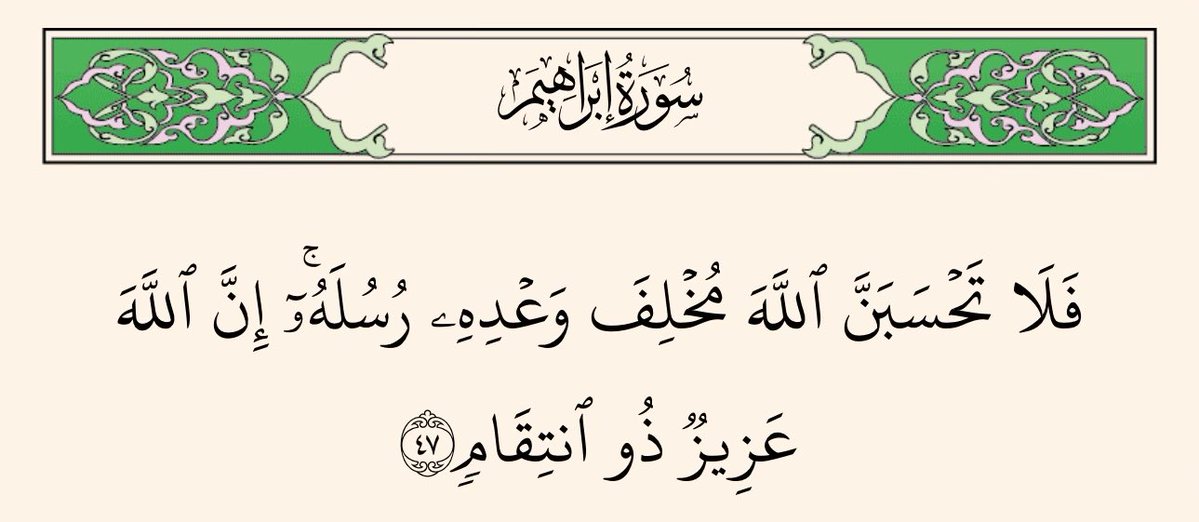 سُورَةُ إِبۡرَاهِيمَ
فَلَا تَحۡسَبَنَّ ٱللَّهَ مُخۡلِفَ وَعۡدِهِۦ رُسُلَهُۥٓۚ إِنَّ ٱللَّهَ
عَزِيزٞ ذُو ٱنتِقَامٖ ٤٧